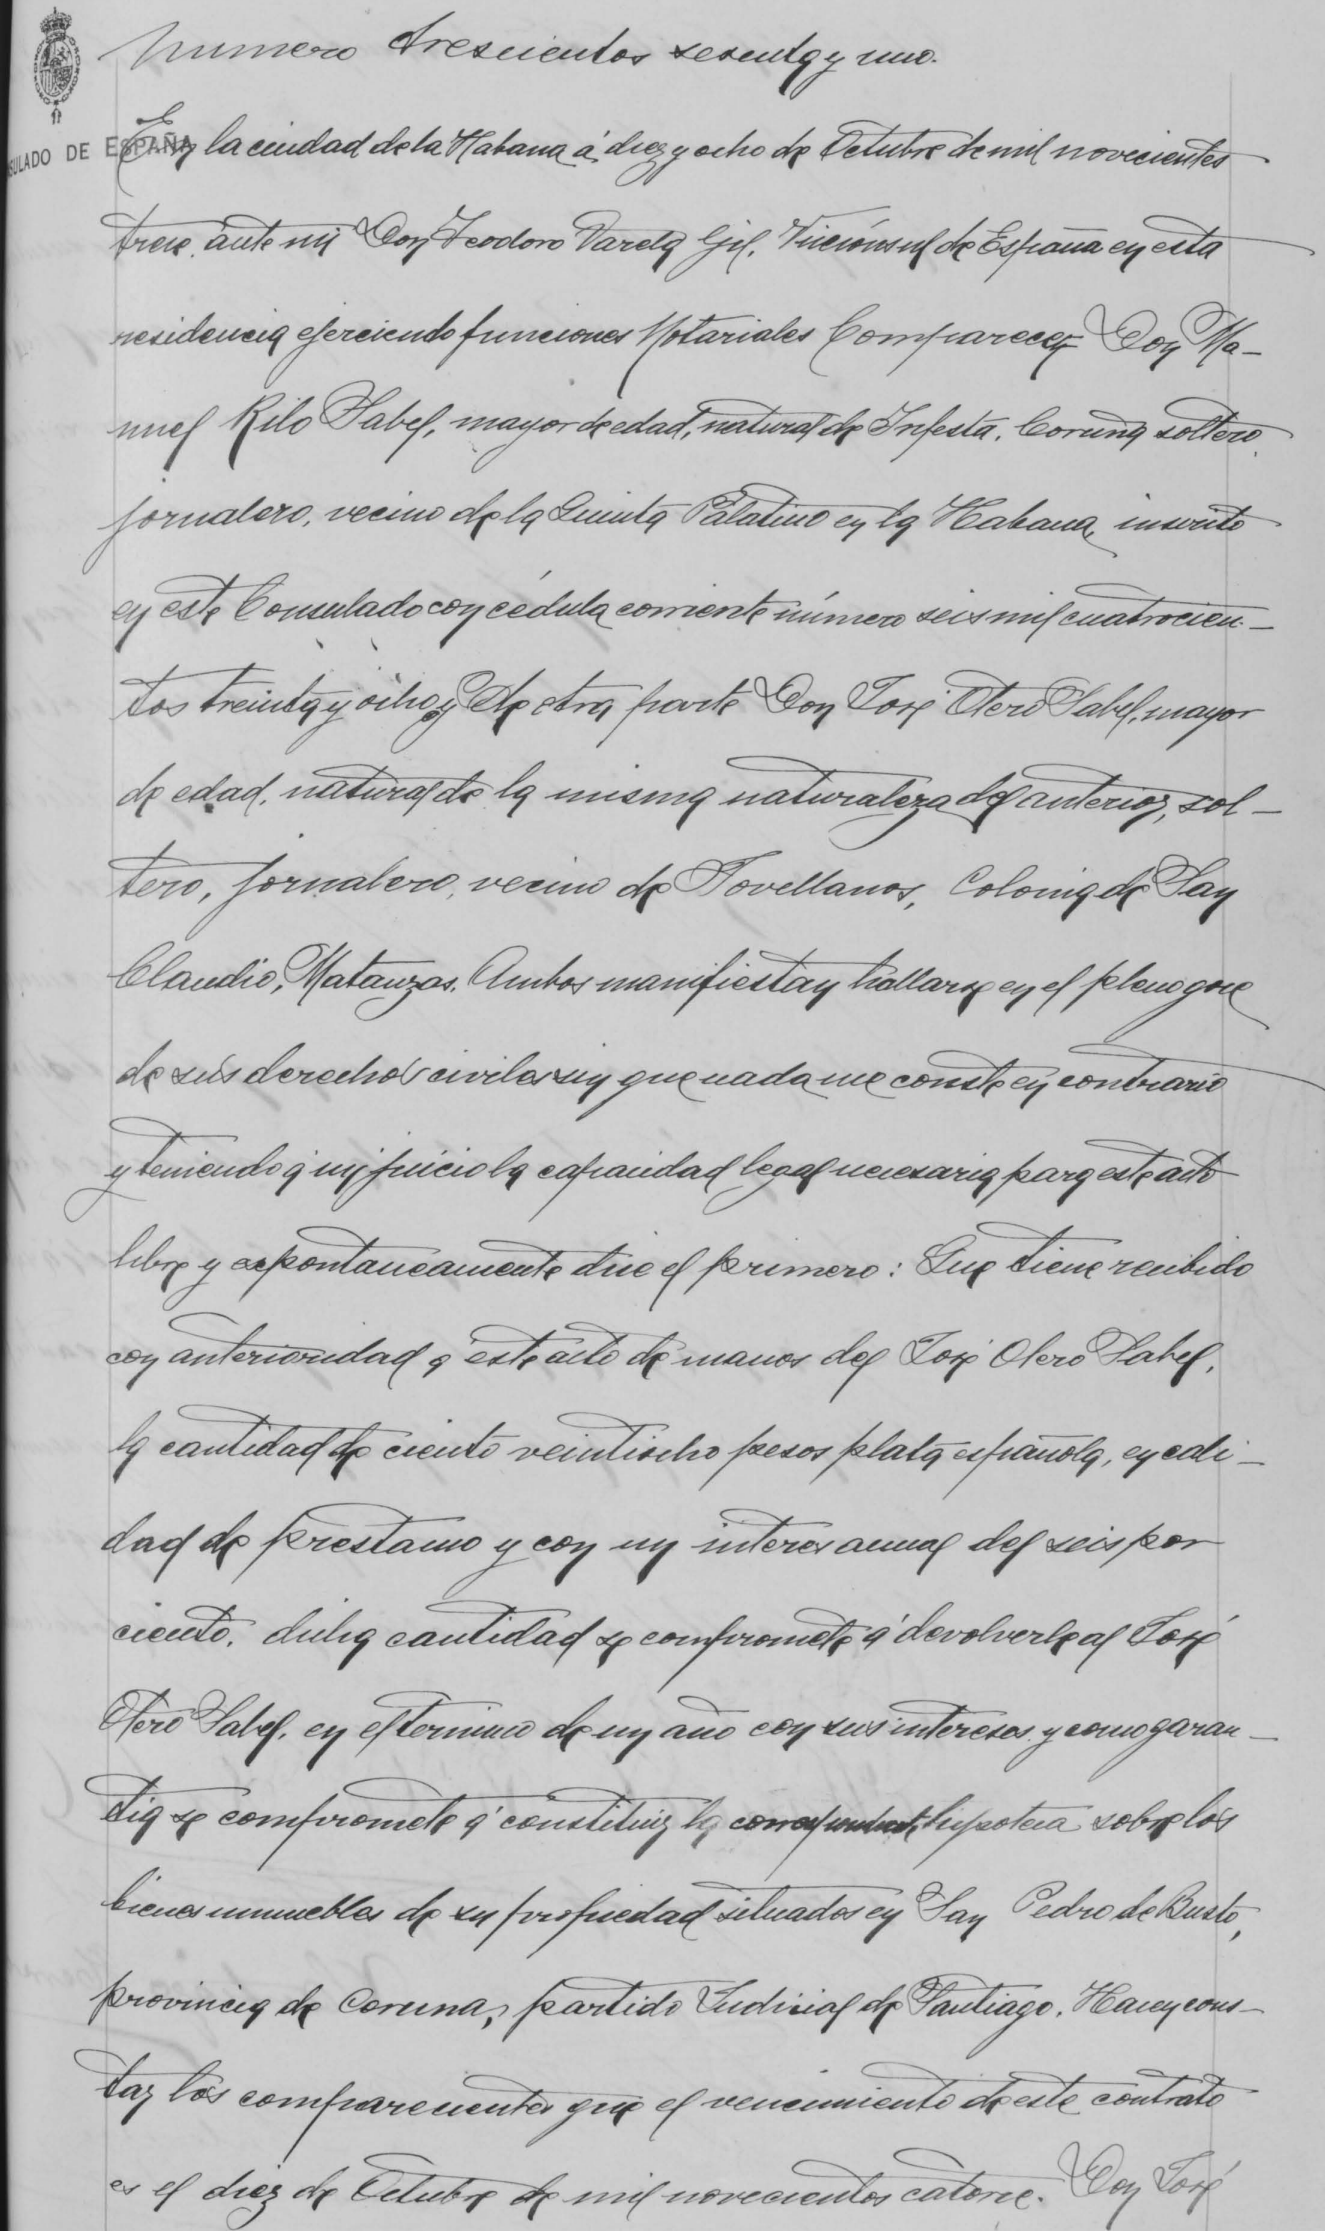 Numero trescientos sesenta y uno.
SULADO DE ESPAÑA
En la ciudad de la Habana á diez y ocho de Octubre de mil novecientos
trece, ante mi Don Teodoro Varela Gil, Vicecónsul de España en esta
residencia ejerciendo funciones Notariales Comparecen Don Ma-
nuel Rilo Sabel, mayor de edad, natural de Infesta, Coruña soltero,
jornalero, vecino de la Quinta Palatino en la Habana, inscrito
en este Consulado con cédula corriente número seis mil cuatrocien-
tos treinta y ocho y de otra parte Don José Otero Sabel, mayor
de edad, natural de la misma naturaleza del anterior, sol-
tero, jornalero, vecino de Jovellanos, Colonia de San
Claudio, Matanzas. Ambos manifiestan hallarse en el pleno goce
de sus derechos civiles sin que nada me conste en contrario
y teniendo á mi juicio la capacidad legal necesaria para este acto
libre y espontaneamente dice el primero: Que tiene recibido
con anterioridad á este acto de manos del José Otero Sabel,
la cantidad de ciento veintiocho pesos plata española, en cali-
dad de prestamo y con un interes anual del seis por
ciento. dicha cantidad se compromete á devolverle al José
Otero Sabel, en el termino de un año con sus intereses y como garan-
tia se compromete á constituir la correspondiente hipoteca sobre los
bienes inmuebles de su propiedad situados en San Pedro de Busto,
provincia de Coruna, partido Judicial de Santiago. Hacen cons-
tar los comparecientes que el vencimiento de este contrato
es el diez de Octubre de mil novecientos catorce. Don José